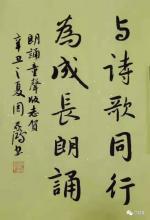 与诗歌同行
為成長朗誦
朗誦童聲版志賀
辛丑之夏周